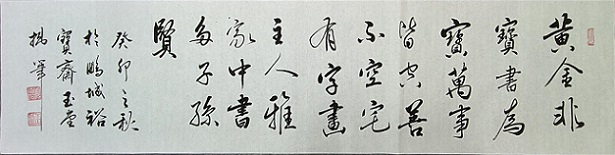 黃金非
寶書為
寶萬事
皆空善
不空宅
有字畫
主人雅
家中書
多子孫
賢
癸卯之秋
於鵬城裕
寶齋玉堂